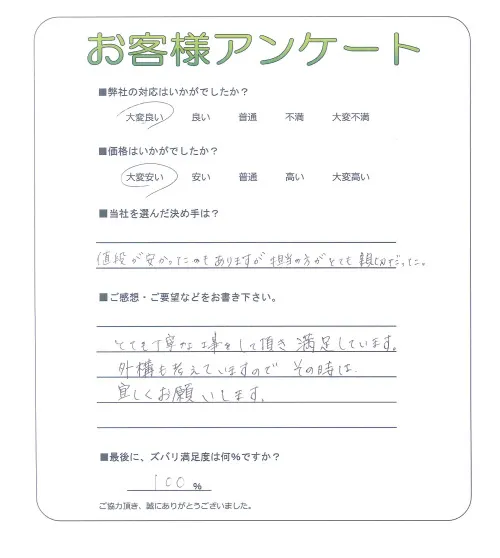 お客様アンケート
■弊社の対応はいかがでしたか？
大変良い 良い 普通 不満 大変不満
■価格はいかがでしたか？
大変安い 安い 普通 高い 大変高い
■当社を選んだ決め手は？
値段が安かったのもありますが 担当の方がとても 親切だった。
■ご感想・ご要望などをお書き下さい。
とても丁寧な工事をして頂き 満足しています。
外構も考えていますので その時は
宜しくお願いします。
■最後に、ズバリ満足度は何％ですか？
100 %
ご協力頂き、誠にありがとうございました。